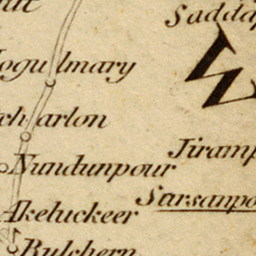 Sadda
ogulmary
charlon
Nundunpour
Jiramp
Sarsanpo
Akeluckeer
Bulchern